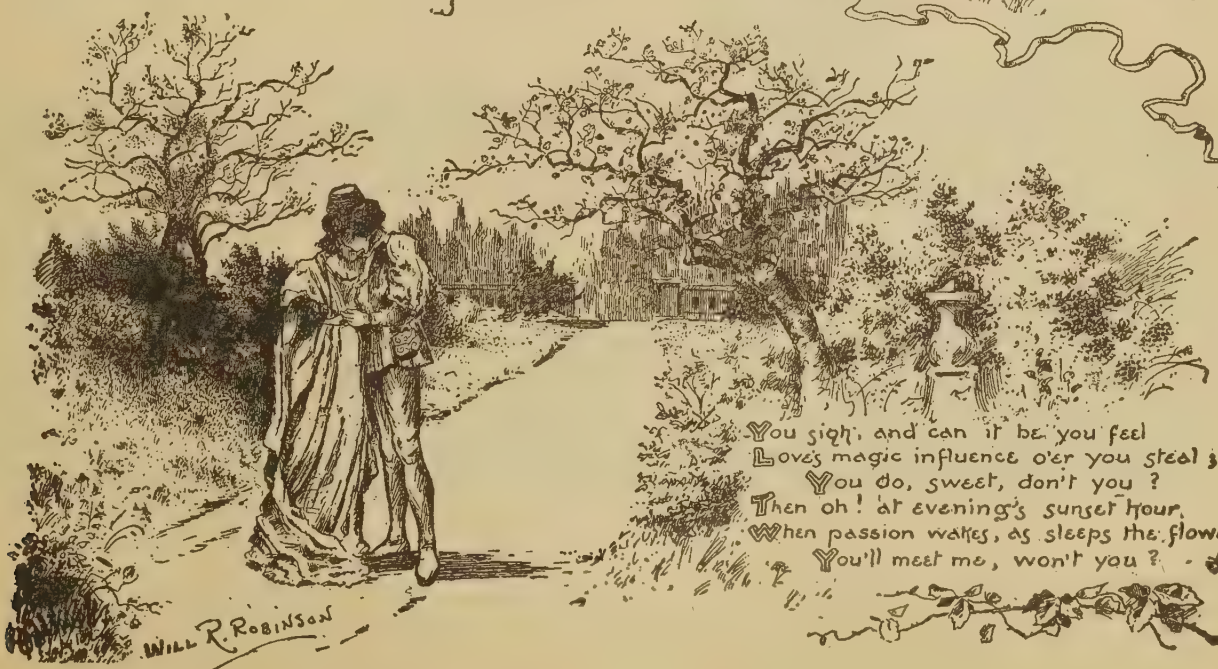 You sigh, and can it be you feel
Love's magic influence o'er you steal ;
You do, sweet, don't you ?
Then oh ! at evening's sunset hour,
When passion wakes, as sleeps the flow
You'll meet me, won't you ?
WILL R. ROBINSON